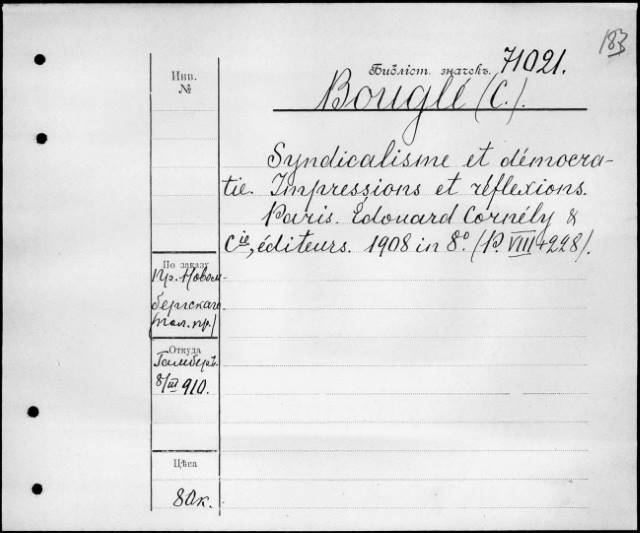 183
Библіот. значекъ. 71021.
Инв.
№
Bouglé (C.).
Syndicalisme et démocra-
tie. Impressions et réflexions.
Paris. Édouard Cornély &
Cie, éditeurs. 1908 in 8º. (P. VIII+228).
По заказу
Пр. Новом-
бергскаго
(пол. пр.)
Откуда
Гамберъ.
8/III 910.
Цѣна
80к.